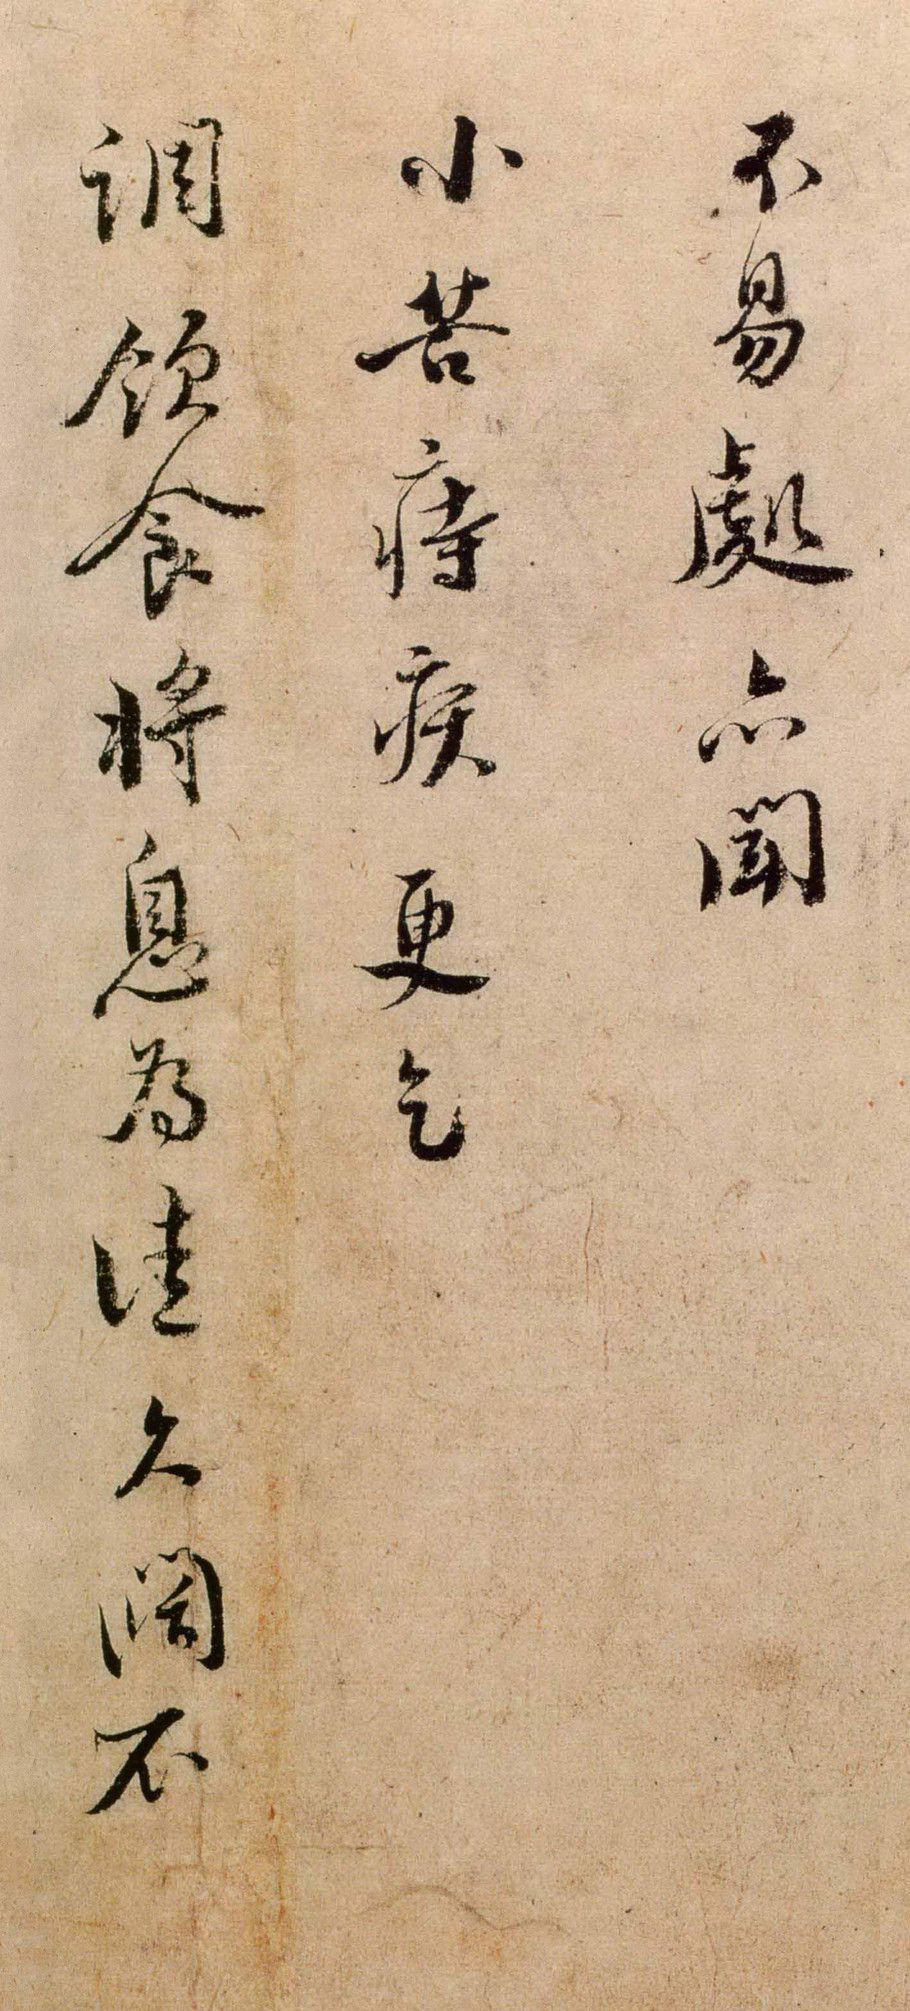 不易處亦聞
小苦痔疾更乞
調飲食將息為佳久闊不